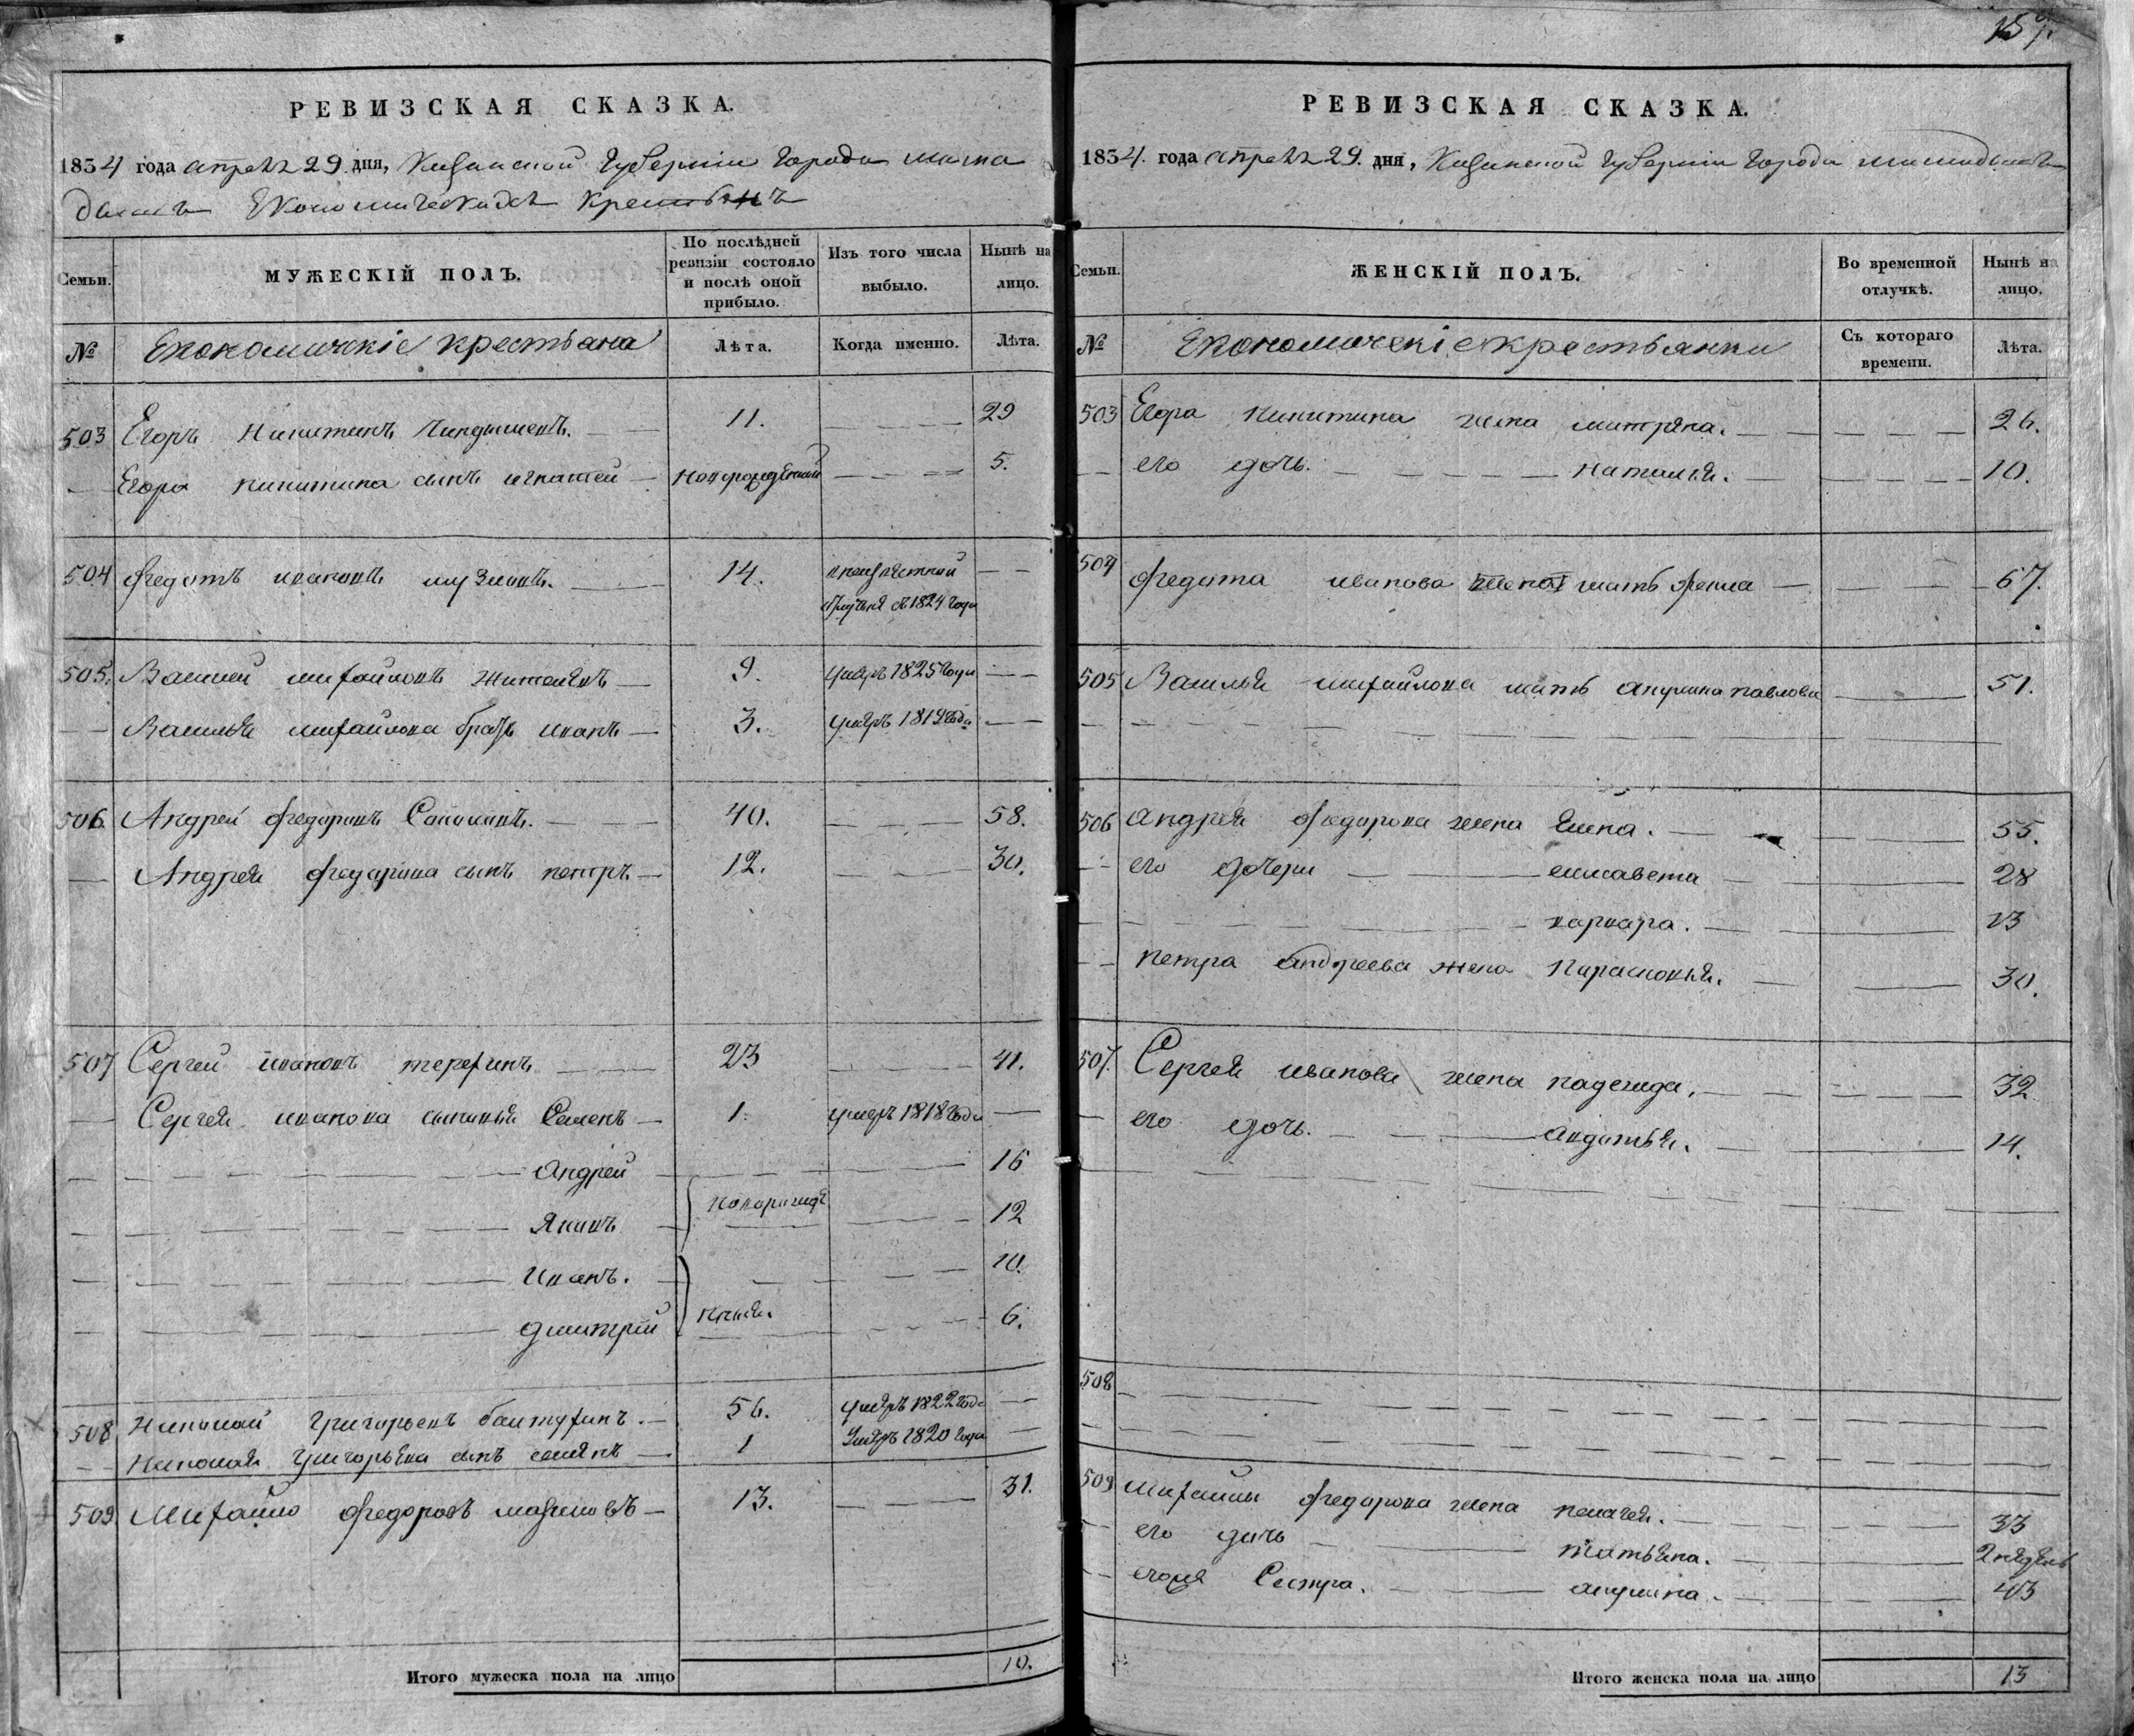 157.
РЕВИЗСКАЯ СКАЗКА.
1834 года апреля 29 дня, Казанской Губернии города мама
дышъ Економическихъ крестьянъ
Семьи.
МУЖЕСКІЙ ПОЛЪ.
По послѣдней ревизіи состояло и послѣ оной прибыло.
Изъ того числа выбыло.
Нынѣ на лицо.
№
Економическіе крестьяна
Лѣта.
Когда именно.
Лѣта.
503 Егоръ Никитинъ 11. 29
Егора никитина сынъ игнатей новорожденной 5.
504 Федотъ ивановъ 14. съ 1824 года
505. Василей михайловъ 9. умеръ 1825 года
Василья михайлова братъ иванъ 3. умеръ 1819 года
506. Андрей федоровъ 40. 58.
Андрея федорова сынъ петръ 12. 30.
507 Сергей ивановъ терехинъ 23 41.
Сергея иванова сыновья Семенъ 1. умеръ 1818 года
Андрей 16
новорожде
Якимъ 12
Иванъ. 10.
дмитрий нныя. 6.
508 Николай григорьевъ 56. умеръ 1822 года
Николая григорьева сынъ семенъ 1 умеръ 1820 года
509. Михайло федоровъ 13. 31.
Итого мужеска пола на лицо 10.
РЕВИЗСКАЯ СКАЗКА.
1834. года апреля 29. дня, Казанской Губернии города мамадышъ
Семьи.
ЖЕНСКІЙ ПОЛЪ.
Во временной отлучкѣ.
Нынѣ на лицо.
№
Економическіе крестьянки
Съ котораго времени.
Лѣта.
503 Егора никитина жена матрена. 26.
его дочь. наталья. 10.
504 Федота иванова мать 67.
505 Василья михайлова мать акулина павлова 51.
506 Андрея федорова жена елена. 55.
его дочери елисавета 28
варвара. 23
петра андреева жена Парасковья. 30.
507. Сергея иванова жена надежда. 32
его дочь. авдотья. 14.
508
509 михайлы федорова жена пелагея. 33
его дочь татьяна. 2 недель
егоже Сестра. акулина. 43
Итого женска пола на лицо 13